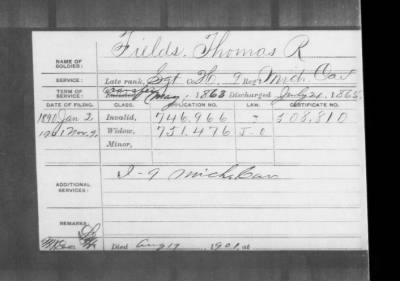 NAME OF SOLDIER: Fields, Thomas R
SERVICE: Late rank, Sgt Co. H, 7 Reg't Mich Cav
TERM OF SERVICE: Enlisted May, 1863 Discharged July 21, 1865
DATE OF FILING. CLASS. APPLICATION NO. LAW. CERTIFICATE NO.
1890 Jan 2, Invalid, 746.966 508.810
1901 Nov 9, Widow, 751.476
Minor,
ADDITIONAL SERVICES: I-9 Mich. Cav
REMARKS:
Died Aug 17 1901, at